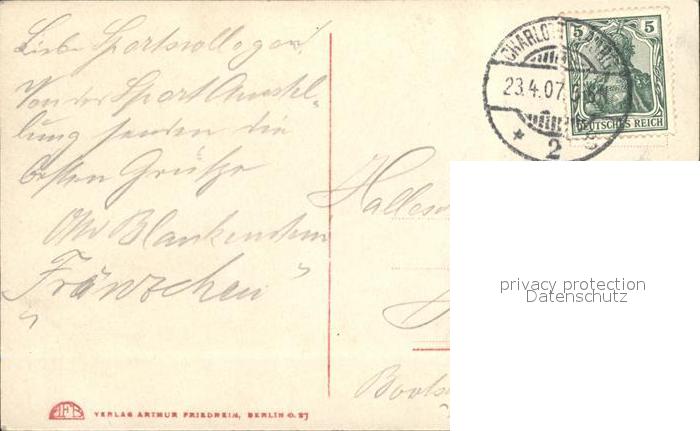 Liebe Sportskollegen!
Von der Sport Ausstel-
lung senden die
besten Grüße
Otto Blankenstein
"Fränzchen"
CHARLOTTENBURG
23.4.07.
* 2
5 5
DEUTSCHES REICH
privacy protection
Datenschutz
VERLAG ARTHUR FRIEDHEIM, BERLIN O. 27